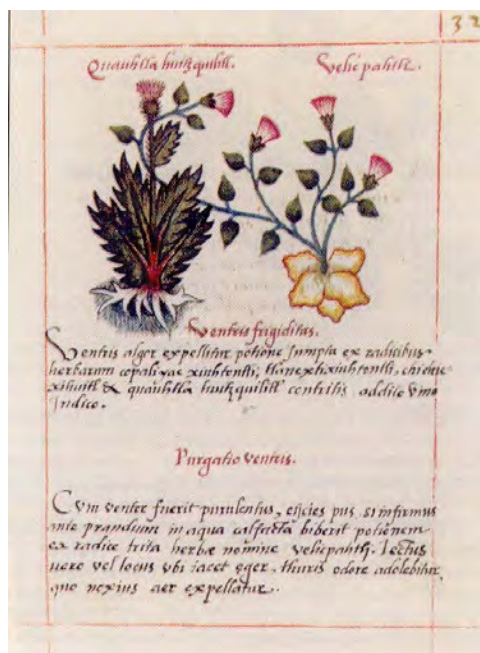 32
Quauhtla huitzquilitl. Velic pahtli.
Ventris frigiditas.
Ventris algor expellitur potione sumpta ex radicibus
herbarum copaliyac xiuhtontli, tlanextixiuhtontli, chichic
xihuitl & quauhtla huitzquilitl contritis addito vino
Indico.
Purgatio ventris.
Cum venter fuerit purulentus, eijcies pus si infirmus
ante prandium in aqua calfacta biberit potionem
ex radice trita herbæ nomine velicpahtli. Lectus
uero vel locus vbi iacet eger, thuris odore adolebitur
quo nexius aer expellatur.